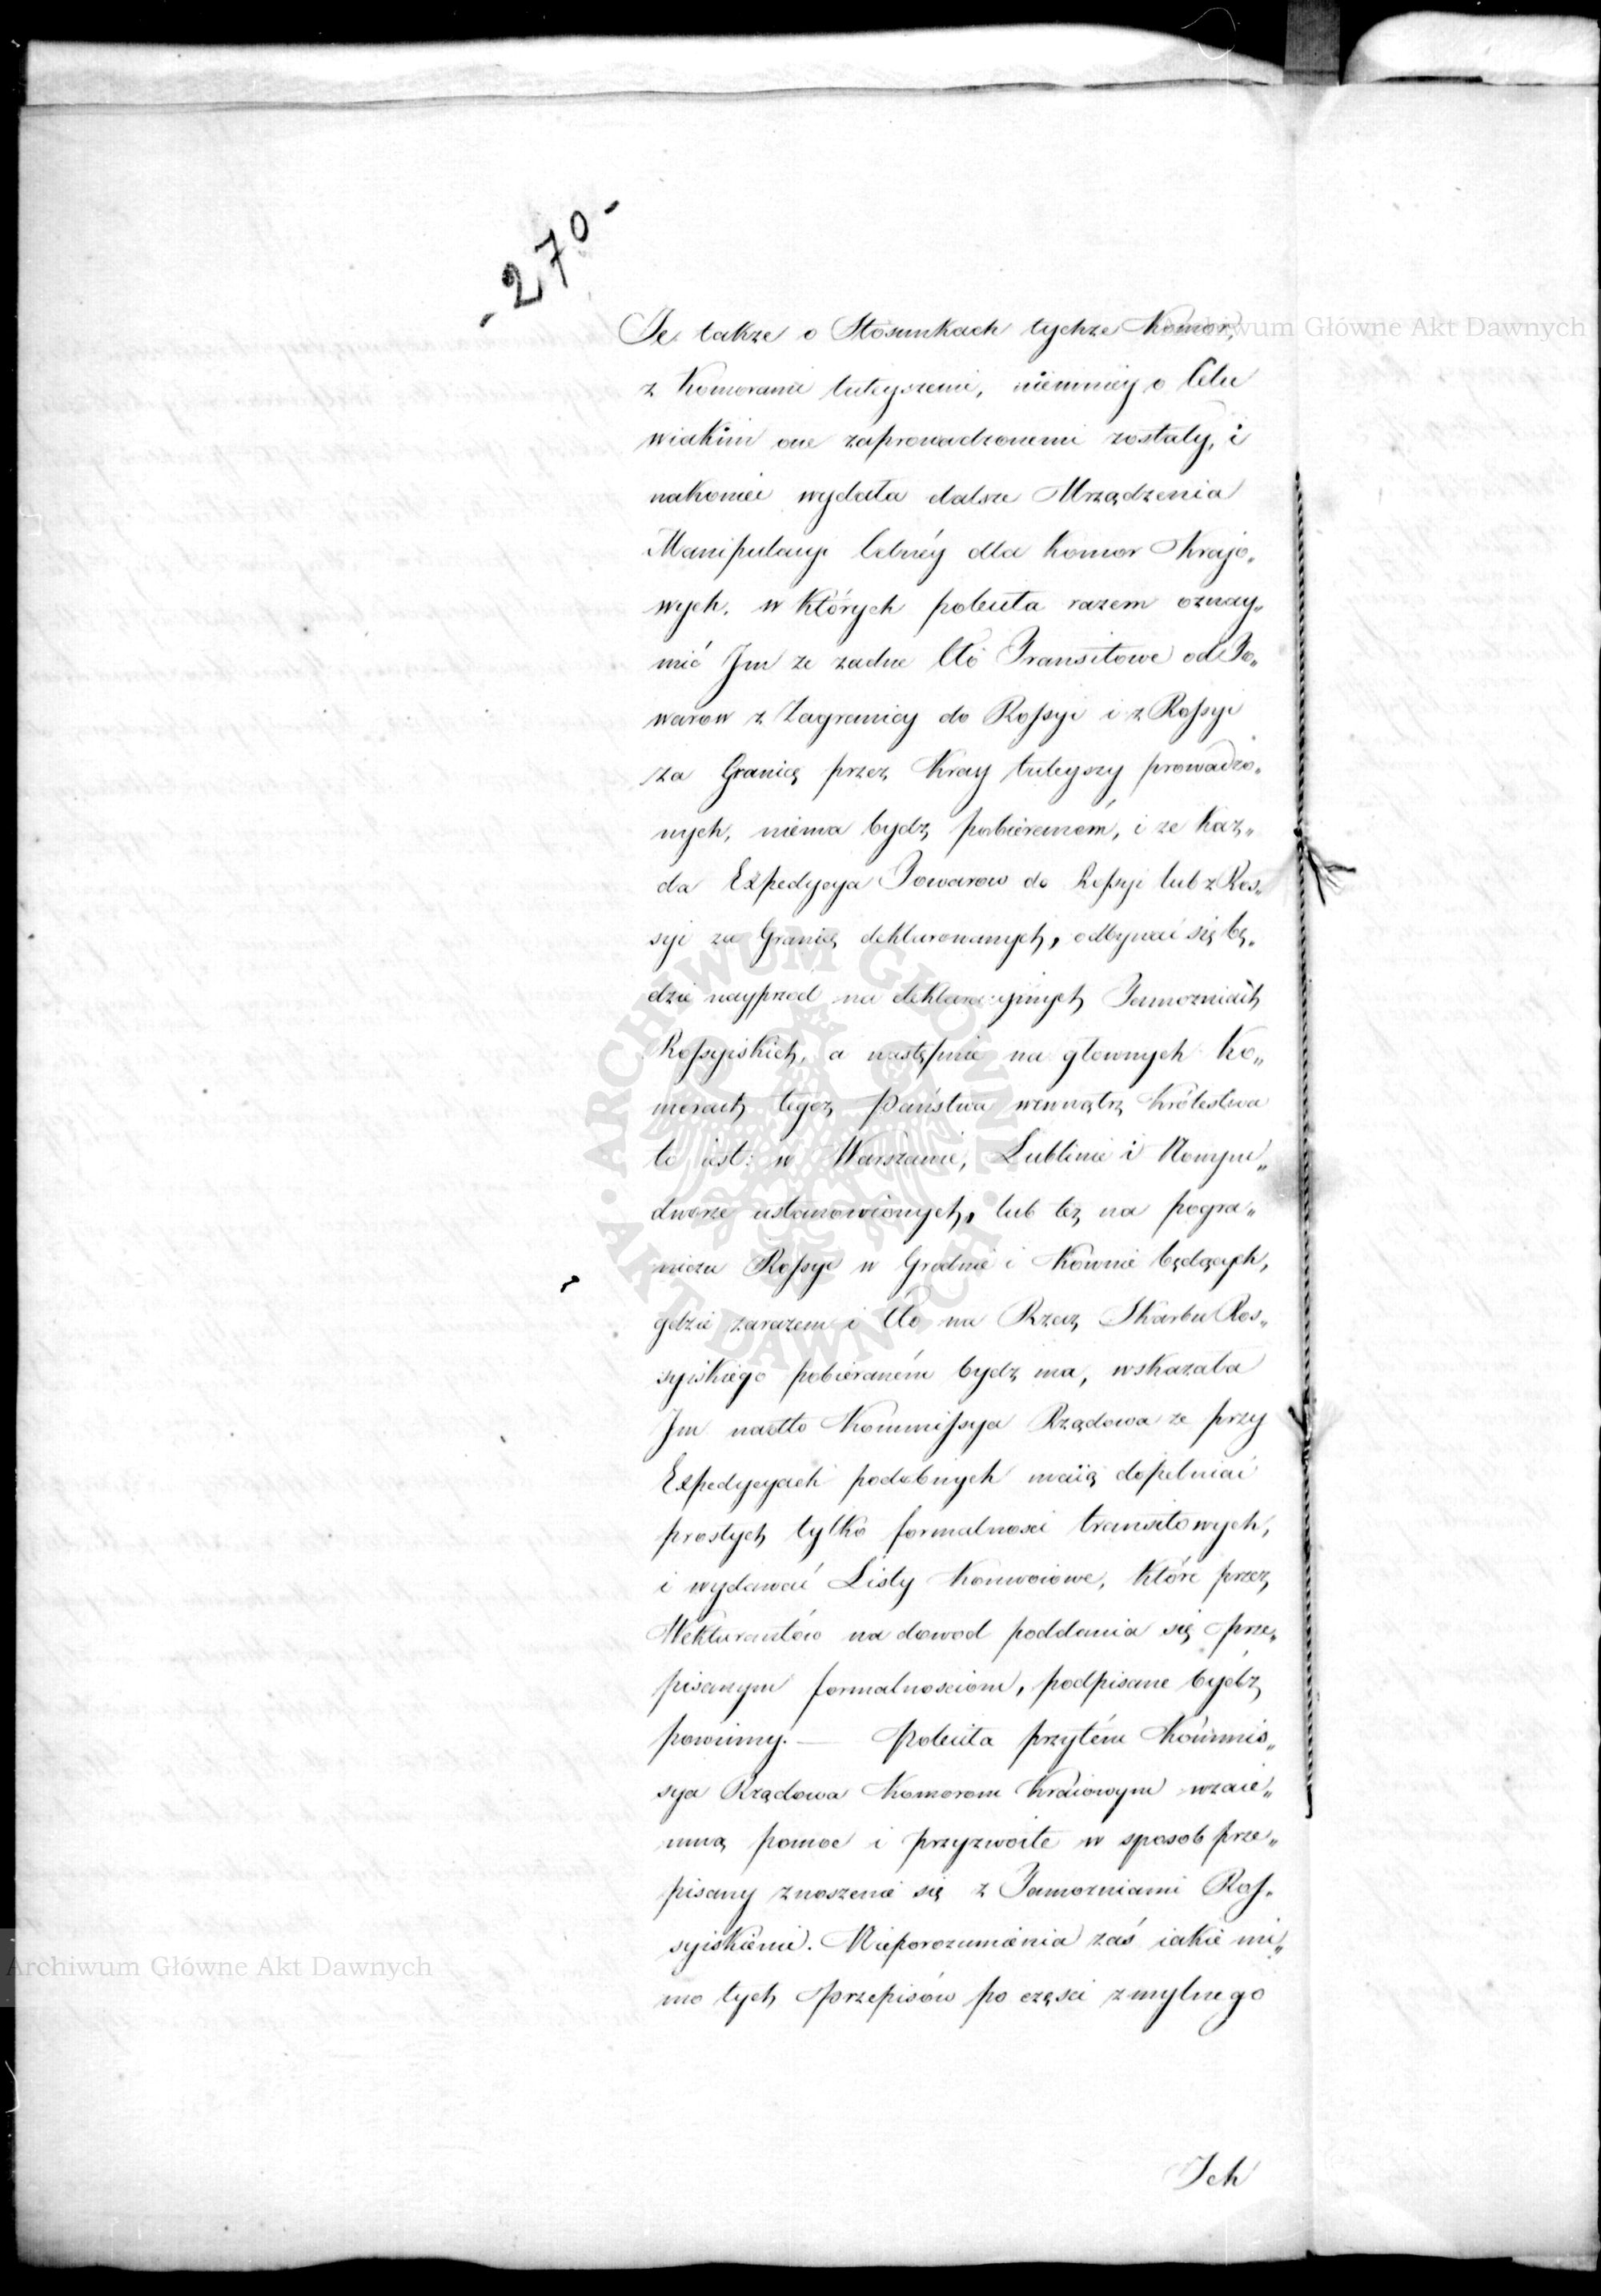 - 270 -
Je także o Stosunkach tychże Komor,
z Komorami tuteyszemi, niemniey o Celu
wiakim one zaprowadzonemi zostały, i
nakoniec wydała dalsze Urządzenia
Manipulacyi Celnéy dla Komor Krajo„
wych, w których poleciła razem oznay„
mić Jm że żadne Cło Transitowe od To„
warow z Zagranicy do Rossyi i z Rossyi
za Granicę przez Kray tuteyszy prowadzo„
nych, niema bydz pobieraném, i że każ„
da Expedycya Towarow do Rossyi lub z Ros„
syi za Granicę deklarowanych, odbywać się bę„
dzie nayprzod na deklaracyinych Tamożniach
Rossyiskich, a następnie na głownych Ko„
morach tegoż Państwa wewnątrz Królestwa
to iest: w Warszawie, Lublinie i Nowym„
dworze ustanowionych, lub też na pogra„
niczu Rossyi w Grodnie i Kownie będących,
gdzie zarazem i Cło na Rzecz Skarbu Ros„
syiskiego pobieraném bydz ma, wskazała
Jm nadto Kommissya Rządowa że przy
Expedycyach podobnych maią dopełniać
prostych tylko formalnosci transitowych,
i wydawać Listy Konwoiowe, które przez
Wekturantów na dowod poddania się prze„
pisanym formalnosciom, podpisane bydz
powinny. — Poleciła przytém Kommis„
sya Rządowa Komorom Kraiowym wzaie„
mną pomoc i przyzwoite w sposob prze„
pisany znoszenie się z Tamożniami Ros„
syiskiemi. Nieporozumienia zaś iakie mi„
mo tych Przepisów po części zmylnego
Ich
Archiwum Główne Akt Dawnych
Archiwum Główne Akt Dawnych
Archiwum Główne Akt Dawnych
ARCHIWUM GŁÓWNE AKT DAWNYCH